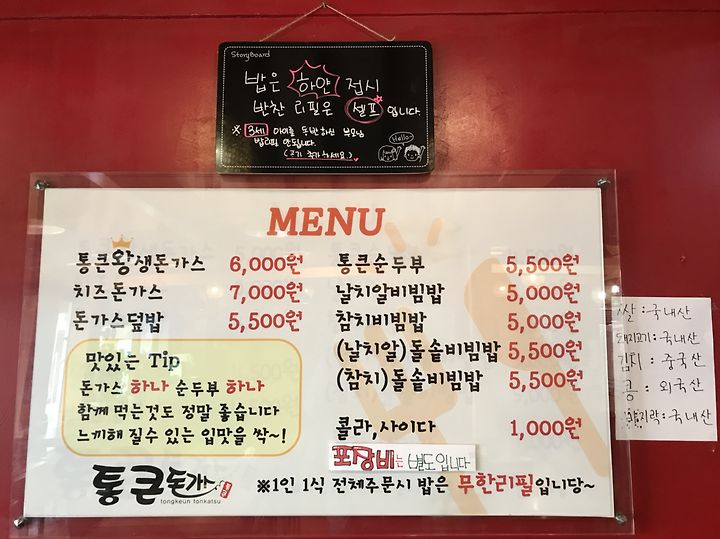 StoryBoard
밥은 하얀 접시
반찬 리필은 셀프입니다
※ 3세 아이를 동반하신 부모님
밥리필 안됩니다.
(공기 추가하세요.)
Hello~
MENU
통큰왕생돈가스 6,000원
치즈돈가스 7,000원
돈가스덮밥 5,500원
맛있는 Tip
돈가스 하나 순두부 하나
함께 먹는것도 정말 좋습니다
느끼해 질수 있는 입맛을 싹~!
통큰돈가스
tongkeun tonkatsu
통큰순두부 5,500원
날치알비빔밥 5,000원
참치비빔밥 5,000원
(날치알)돌솥비빔밥 5,500원
(참치)돌솥비빔밥 5,500원
콜라,사이다 1,000원
포장비는 별도입니다
※1인 1식 전체주문시 밥은 무한리필입니당~
쌀:국내산
돼지고기:국내산
김치:중국산
콩:외국산
바지락:국내산